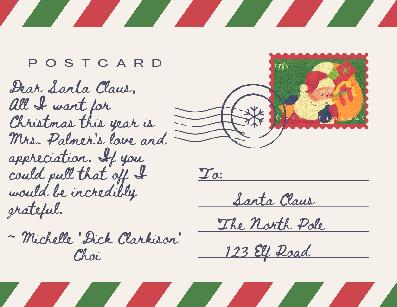 POSTCARD
Dear Santa Claus,
All I want for
Christmas this year is
Mrs. Palmer's love and
appreciation. If you
could pull that off I
would be incredibly
grateful.
~ Michelle 'Dick Clarkison'
Choi
To:
Santa Claus
The North Pole
123 Elf Road